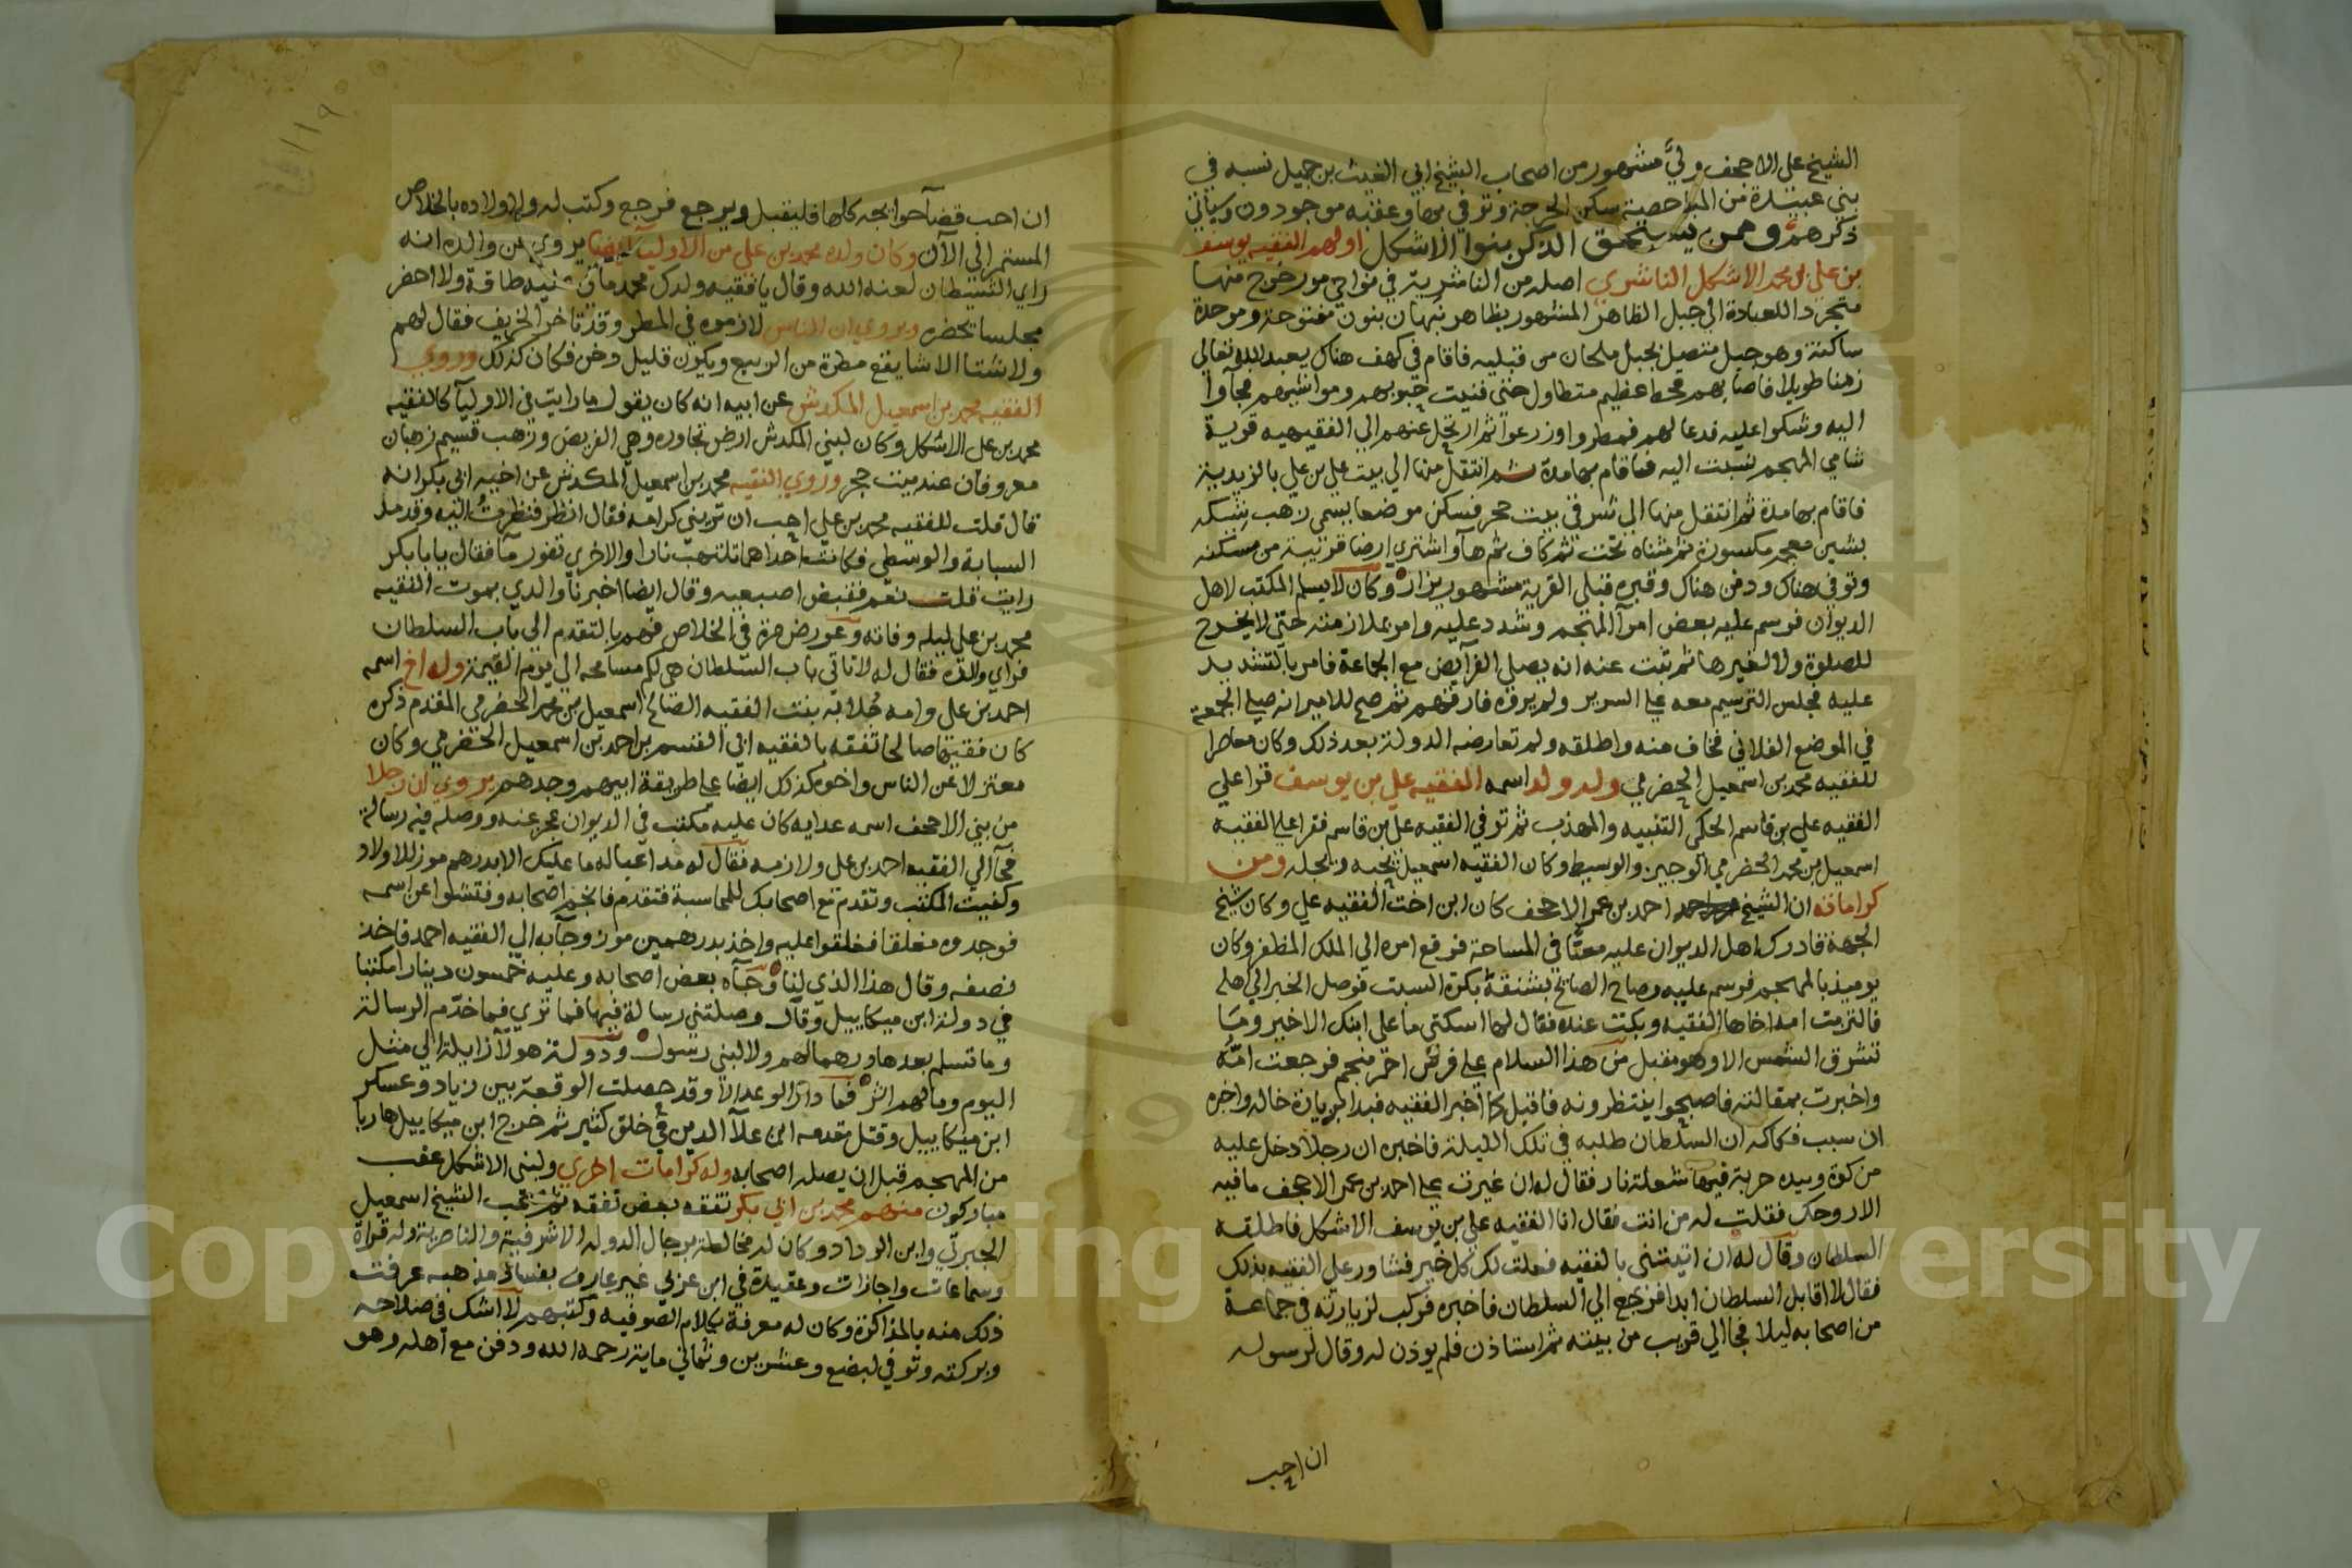 الشيخ علي الاجحف وليّ مشهور من اصحاب الشيخ ابي الغيث بن جميل نسبه في
بني عبيدة من المباحصية سكن الحرجة وتوفي بها وعقبه موجودون وسياتي
ذكرهم وممن يستحق الذكر بنوا الاشكل اولهم الفقيه يوسف
بن علي بن محمد الاشكل الناشري اصله من الناشرية في نواحي مور خرج منها
متجردا للعبادة الي جبل الظاهر المشهور بظاهر نبهان بنون مفتوحة وموحدة
ساكنة وهو جبل متصل بجبل ملحان من قبليه فاقام في كهف هناك يعبد الله تعالي
زمنا طويلا فاصابهم محط عظيم متطاول حتي فنيت حبوبهم ومواشيهم فجآوا
اليه وشكوا عليه فدعا لهم فمطروا وزرعوا ثم ارتحل عنهم الي الفقيهيه قرية
شامي المهجم نسبت اليه فاقام بها مدة ثم انتقل منها الي بيت علي بن علي بالزيدية
فاقام بها مدة ثم انتقل منها الي شرقي بيت حجر فسكن موضعا يسمي زهب بشكه
بشين معجمه مكسورة ثم مثناه تحت ثم كاف ثم هآ واشتري ارضا قريبة من مسكنه
وتوفي هناك ودفن هناك وقبره قبلي القرية مشهور يزار وكان لا يسلم المكتب لاهل
الديوان فرسم عليه بعض امرآ المهجم وشدد عليه وامر بملازمته حتي لا يخرج
للصلوة ولا لغيرها ثم ثبت عنه انه يصلي الفرآيض مع الجماعة فامر بالتشديد
عليه فجلس الترسيم معه علي السرير ولم يروه فارقهم ثم صح للامير انه صلي الجمعة
في الموضع الفلاني فخاف منه واطلقه ولم تعارضه الدولة بعد ذلك وكان معاصرا
للفقيه محمد بن اسمعيل الحضرمي وله ولد اسمه الفقيه علي بن يوسف قرا علي
الفقيه علي بن قاسم الحكمي التنبيه والمهذب ثم توفي الفقيه علي بن قاسم فقرا علي الفقيه
اسمعيل بن محمد الحضرمي الوجيز والوسيط وكان الفقيه اسمعيل يحبه ويجله ومن
كراماته ان الشيخ احمد بن عمر الاجحف كان ابن اخت الفقيه علي وكان شيخ
الجهة فادرك اهل الديوان عليه معتبًا في المساحة فرفع امره الي الملك المظفر وكان
يوميذ بالمهجم فرسم عليه وصاح الصايح بشنقه بكرة السبت فوصل الخبر الي اهله
فالتزمت امه اخاها الفقيه وبكت عنده فقال لها اسكتي ما علي ابنك الا خير وما
تشرق الشمس الا وهو مقبل من هذا السلام علي فرس احمر منجم فرجعت امّه
واخبرت بمقالته فاصبحوا ينتظرونه فاقبل كما اخبر الفقيه فبدا بزيارة خاله واخبره
ان سبب فكاكه ان السلطان طلبه في تلك الليلة فاخبره ان رجلا دخل عليه
من كوة وبيده حربة فيها شعلة نار فقال له ان غيرت علي احمد بن عمر الاجحف ما فيه
الا روحك فقلت له من انت فقال انا الفقيه علي بن يوسف الاشكل فاطلقه
السلطان وقال له ان اتيتني بالفقيه فعلت لك كل خير فشاور علي الفقيه بذلك
فقال لا اقابل السلطان ابدا فرجع الي السلطان فاخبره فركب لزيارته في جماعة
من اصحابه ليلا فجا الي قريب من بيته ثم استاذن فلم يوذن له وقال لرسوله
ان احب
١١٩
ان احب قضآ حوايجه كلها فليقبل ويرجع فرجع وكتب له ولاولاده بالخلاص
المستمر الي الآن وكان ولده محمد بن علي من الاوليآ ايضا يروي عن والده انه
راي الشيطان لعنه الله وقال يا فقيه ولدك محمد ما في فيه طاقة ولا احضر
مجلسا تحضره ويروي ان الناس لازموه في المطر وقد تاخر الخريف فقال لهم
ولا شتا الا شا يقع مطرة من الربيع ويكون قليل دخن فكان كذلك وروي
الفقيه محمد بن اسمعيل المكدش عن ابيه انه كان يقول ما رايت في الاوليآ كالفقيه
محمد بن علي الاشكل وكان لبني المكدش ارض تجاوره وهي الفريض وزهب قسيم زهبان
معروفان عند بيت حجر وروي الفقيه محمد بن اسمعيل المكدش عن اخيه ابي بكر انه
قال قلت للفقيه محمد بن علي احب ان تريني كرامه فقال انظر فنظرت اليه وقد مد
السبابة والوسطي فكانت احداهما تلتهب نارا والاخري تفور مآ فقال يا بابكر
رايت قلت نعم فقبض اصبعيه وقال ايضا اخبرنا والدي بموت الفقيه
محمد بن علي ليله وفاته وعورض مرة في الخلاص فهم بالتقدم الي باب السلطان
فراي والده فقال له لا تاتي باب السلطان هي لكم مسامحه الي يوم القيمة وله اخ اسمه
احمد بن علي وامه خلابه بنت الفقيه الصالح اسمعيل بن عمر الحضرمي المقدم ذكره
كان فقيها صالحا تفقه بالفقيه ابي القسم بن احمد بن اسمعيل الحضرمي وكان
معتزلا عن الناس واخوه كذلك ايضا علي طريقة ابيهم وجدهم يروي ان رجلا
من بني الاجحف اسمه عدايه كان عليه مكتب في الديوان عجز عنه ووصله فيه رسالة
فجآ الي الفقيه احمد بن علي ولازمه فقال له مد اعياله ما عليك الا بدرهم موز للاولاد
وكفيت المكتب وتقدم مع اصحابك للمحاسبة فتقدم فانجز اصحابه وفتشوا عن اسمه
فوجدوه مغلقا فغلقوا عليه واخذ بدرهمين موز وجآ به الي الفقيه احمد فاخذ
نصفه وقال هذا الذي لنا وجآه بعض اصحابه وعليه خمسون دينارا مكتبا
في دولة ابن ميكاييل وقال وصلتني رسالة فيها فما تري فما خدّم الرسالة
وما تسلم بعدها درهما لهم ولا لبني رسول ودولة هولآ زايلة الي مثل
اليوم وما لهم اثر فما دار الوعد الا وقد حصلت الوقعة بين زياد وعسكر
ابن ميكاييل وقتل مقدمه ابن علآ الدين في خلق كثير ثم خرج ابن ميكاييل هاربا
من المهجم قبل ان يصله اصحابه وله كرامات اخري ولبني الاشكل عقب
مباركون منهم محمد بن ابي بكر تفقه بعض تفقه ثم صحب الشيخ اسمعيل
الجبرتي وابن الرداد وكان له مخالطة برجال الدوله الاشرفية والناصرية وله قراة
وسماعات واجازات وعقيدة في ابن عربي غير عارف بفساد مذهبه عرفت
ذلك منه بالمذاكرة وكان له معرفة بكلام الصوفيه وكتبهم لا اشك في صلاحه
وبركته وتوفي لبضع وعشرين وثماني ماية رحمه الله ودفن مع اهله وهو